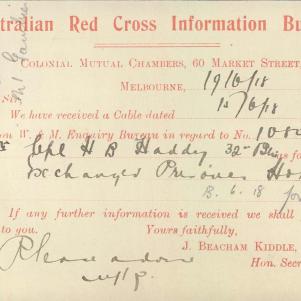 tralian Red Cross Information Bu
Colonial Mutual Chambers, 60 Market Street,
Melbourne, 19/6/18
No.
We have received a Cable dated 15/6/18
on W. & M. Enquiry Bureau in regard to No. 108
Cpl H B Haddy 32nd Btn s fo
exchanged Prisoner Ho
13.6.18
If any further information is received we shall
to you. Yours faithfully,
J. Beacham Kiddle,
Please advise Hon. Secr